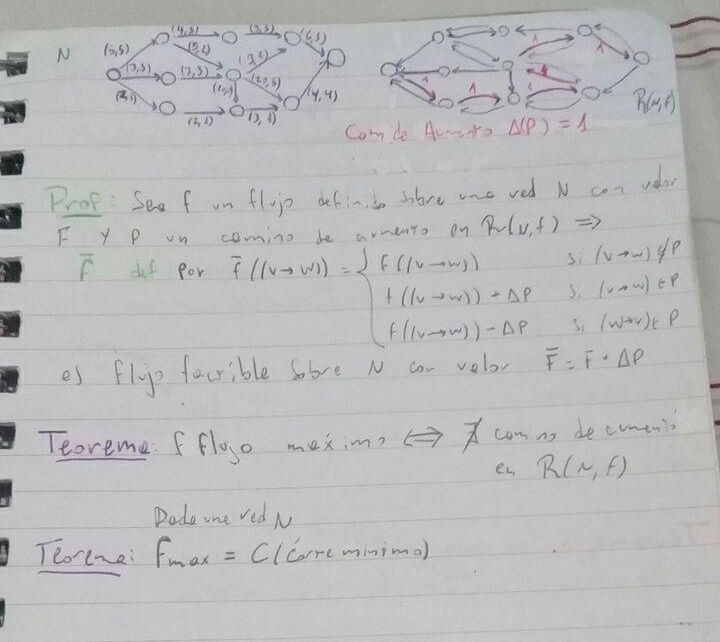 N
(4,3) (3,3) (6,5)
(5,5) (5,2) (3,2)
(3,3) (3,3)
(2,1) (4,4)
(2,1) (3,1)
1 1
1 1
1 1
R(N,f)
Cam de Aumento Δ(P) = 1
Prop: Sea f un flujo definido sobre una red N con valor
F y P un camino de aumento en R(N,f) ⇒
f̄ def por f̄((v→w)) = { f((v→w)) si (v→w)∉P
f((v→w)) + ΔP si (v→w)∈P
f((v→w)) - ΔP si (w→v)∈P
es flujo factible sobre N con valor F̄ = F + ΔP
Teorema: f flujo máximo ⇔ ∄ camino de aumento
en R(N,f)
Dada una red N
Teorema: Fmax = C(corte minimo)